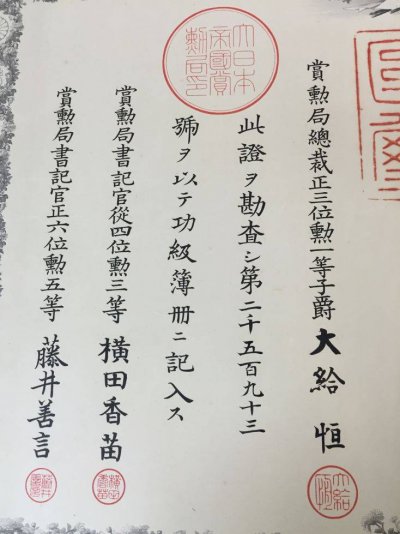 賞勲局總裁正三位勲一等子爵大給恒
此證ヲ勘査シ第二千五百九十三
號ヲ以テ功級簿冊ニ記入ス
賞勲局書記官從四位勲三等横田香苗
賞勲局書記官正六位勲五等藤井善言
大日本
帝國賞
勲局印